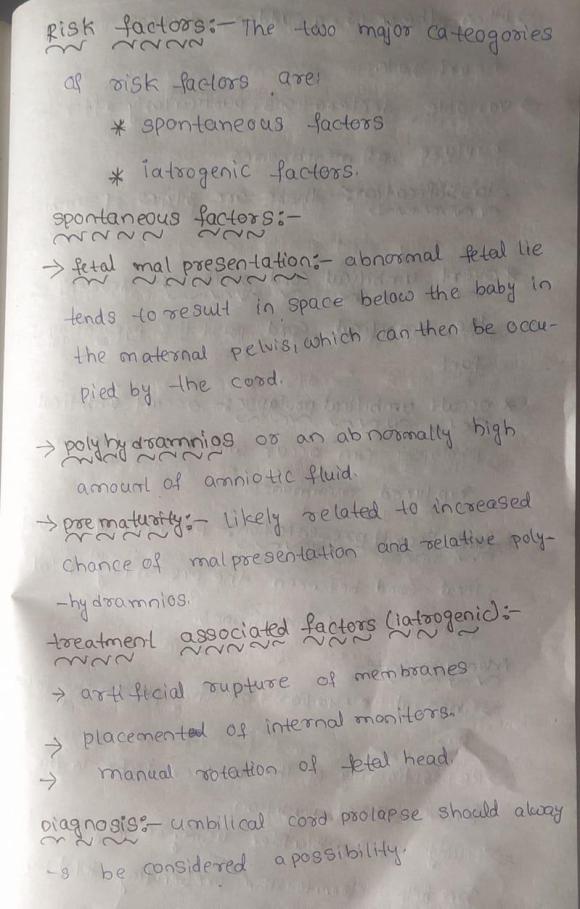 Risk factors:- The two major cateogories
of risk factors are:
* spontaneous factors
* iatrogenic factors.
spontaneous factors:-
→ fetal mal presentation:- abnormal fetal lie
tends to result in space below the baby in
the maternal pelvis, which can then be occu-
pied by the cord.
→ polyhydramnios or an abnormally high
amount of amniotic fluid.
→ prematurity:- likely related to increased
chance of malpresentation and relative poly-
-hydramnios.
treatment associated factors (iatrogenic):-
→ artificial rupture of membranes
→ placemented of internal monitors.
→ manual rotation of fetal head.
Diagnosis:- umbilical cord prolapse should alway
-s be considered a possibility.